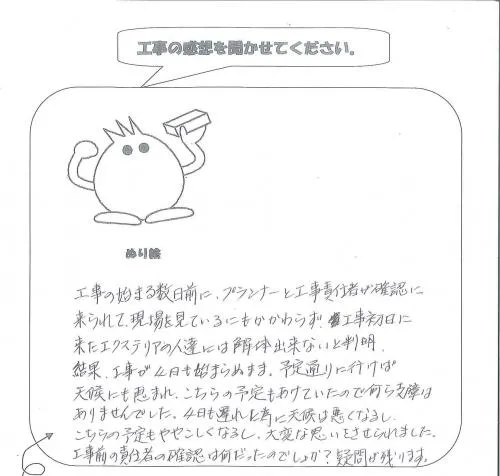 工事の感想を聞かせてください。
ぬり絵
工事の始まる数日前に、プランナーと工事責任者が確認に
来られて、現場を見ているにもかかわらず、工事初日に
来たエクステリアの人達には解体出来ないと判明。
結果、工事が4日も始まらぬまま。予定通りに行けば
天候にも恵まれ、こちらの予定もあけていたので何ら支障は
ありませんでした。4日も遅れた為に天候は悪くなるし、
こちらの予定もややこしくなるし、大変な思いをさせられました。
工事前の責任者の確認は何だったのでしょうか？疑問が残ります。